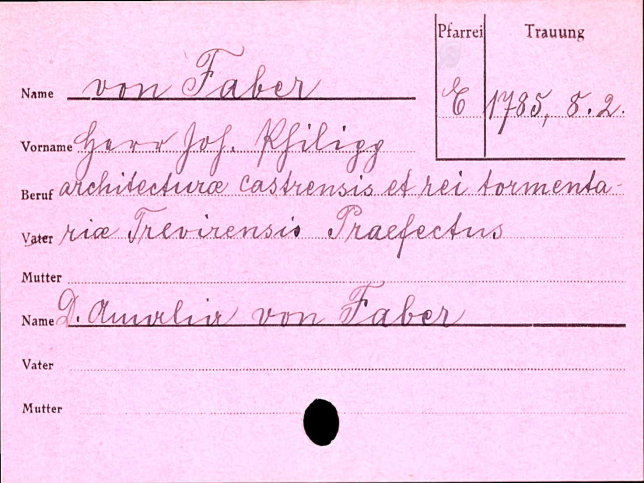 Pfarrei Trauung
Name von Faber
E 1785, 8.2.
Vorname Herr Joh. Philipp
Beruf architecturæ castrensis et rei tormenta-
Vater riæ Trevirensis Praefectus
Mutter
Name D. Amalia von Faber
Vater
Mutter